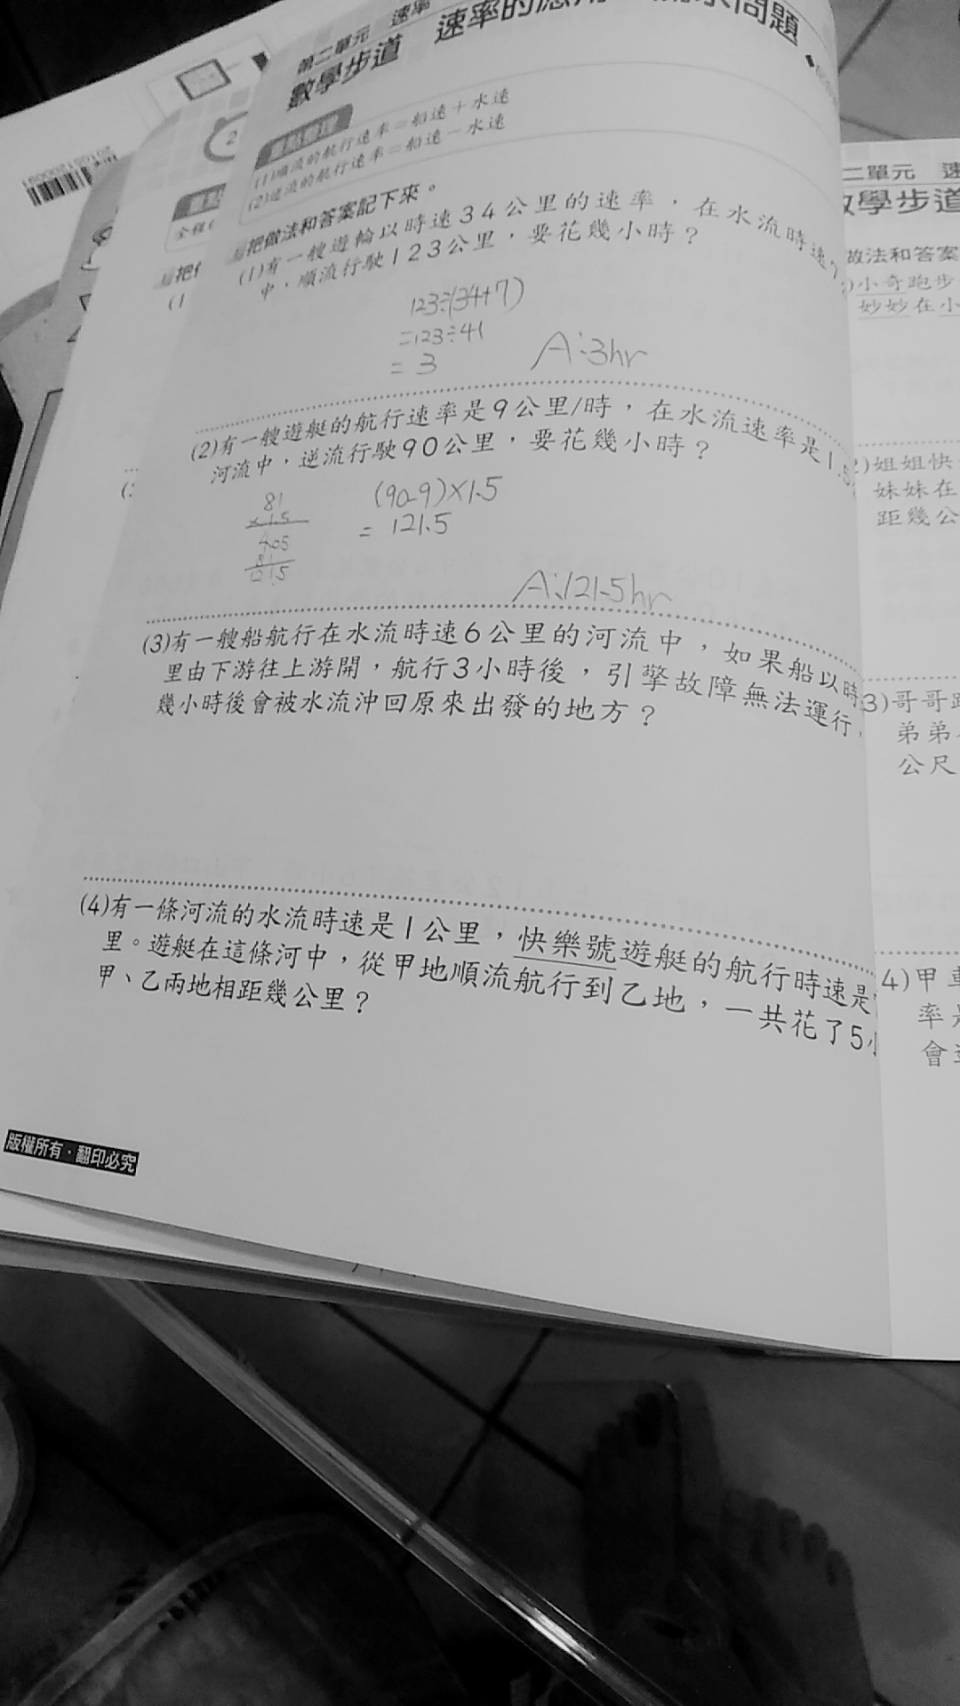 第二單元 速率
數學步道 速率的應用 問題
重點整理
(1)順流的航行速率=船速+水速
(2)逆流的航行速率=船速-水速
把做法和答案記下來。
(1)有一艘遊輪以時速34公里的速率,在水流時速7
中,順流行駛123公里,要花幾小時?
123÷(34+7)
=123÷41
=3
A:3hr
(2)有一艘遊艇的航行速率是9公里/時,在水流速率是1.5
河流中,逆流行駛90公里,要花幾小時?
81
×1.5
405
81
121.5
(90-9)×1.5
= 121.5
A:121.5hr
(3)有一艘船航行在水流時速6公里的河流中,如果船以時
里由下游往上游開,航行3小時後,引擎故障無法運行,
幾小時後會被水流沖回原來出發的地方?
(4)有一條河流的水流時速是1公里,快樂號遊艇的航行時速是
里。遊艇在這條河中,從甲地順流航行到乙地,一共花了5小
甲、乙兩地相距幾公里?
版權所有‧翻印必究
2
全程
把
(1
二單元 速
數學步道
做法和答案
小奇跑步
妙妙在小
2)姐姐快
妹妹在
距幾公
3)哥哥跑
弟弟
公尺
4)甲車
率是
會